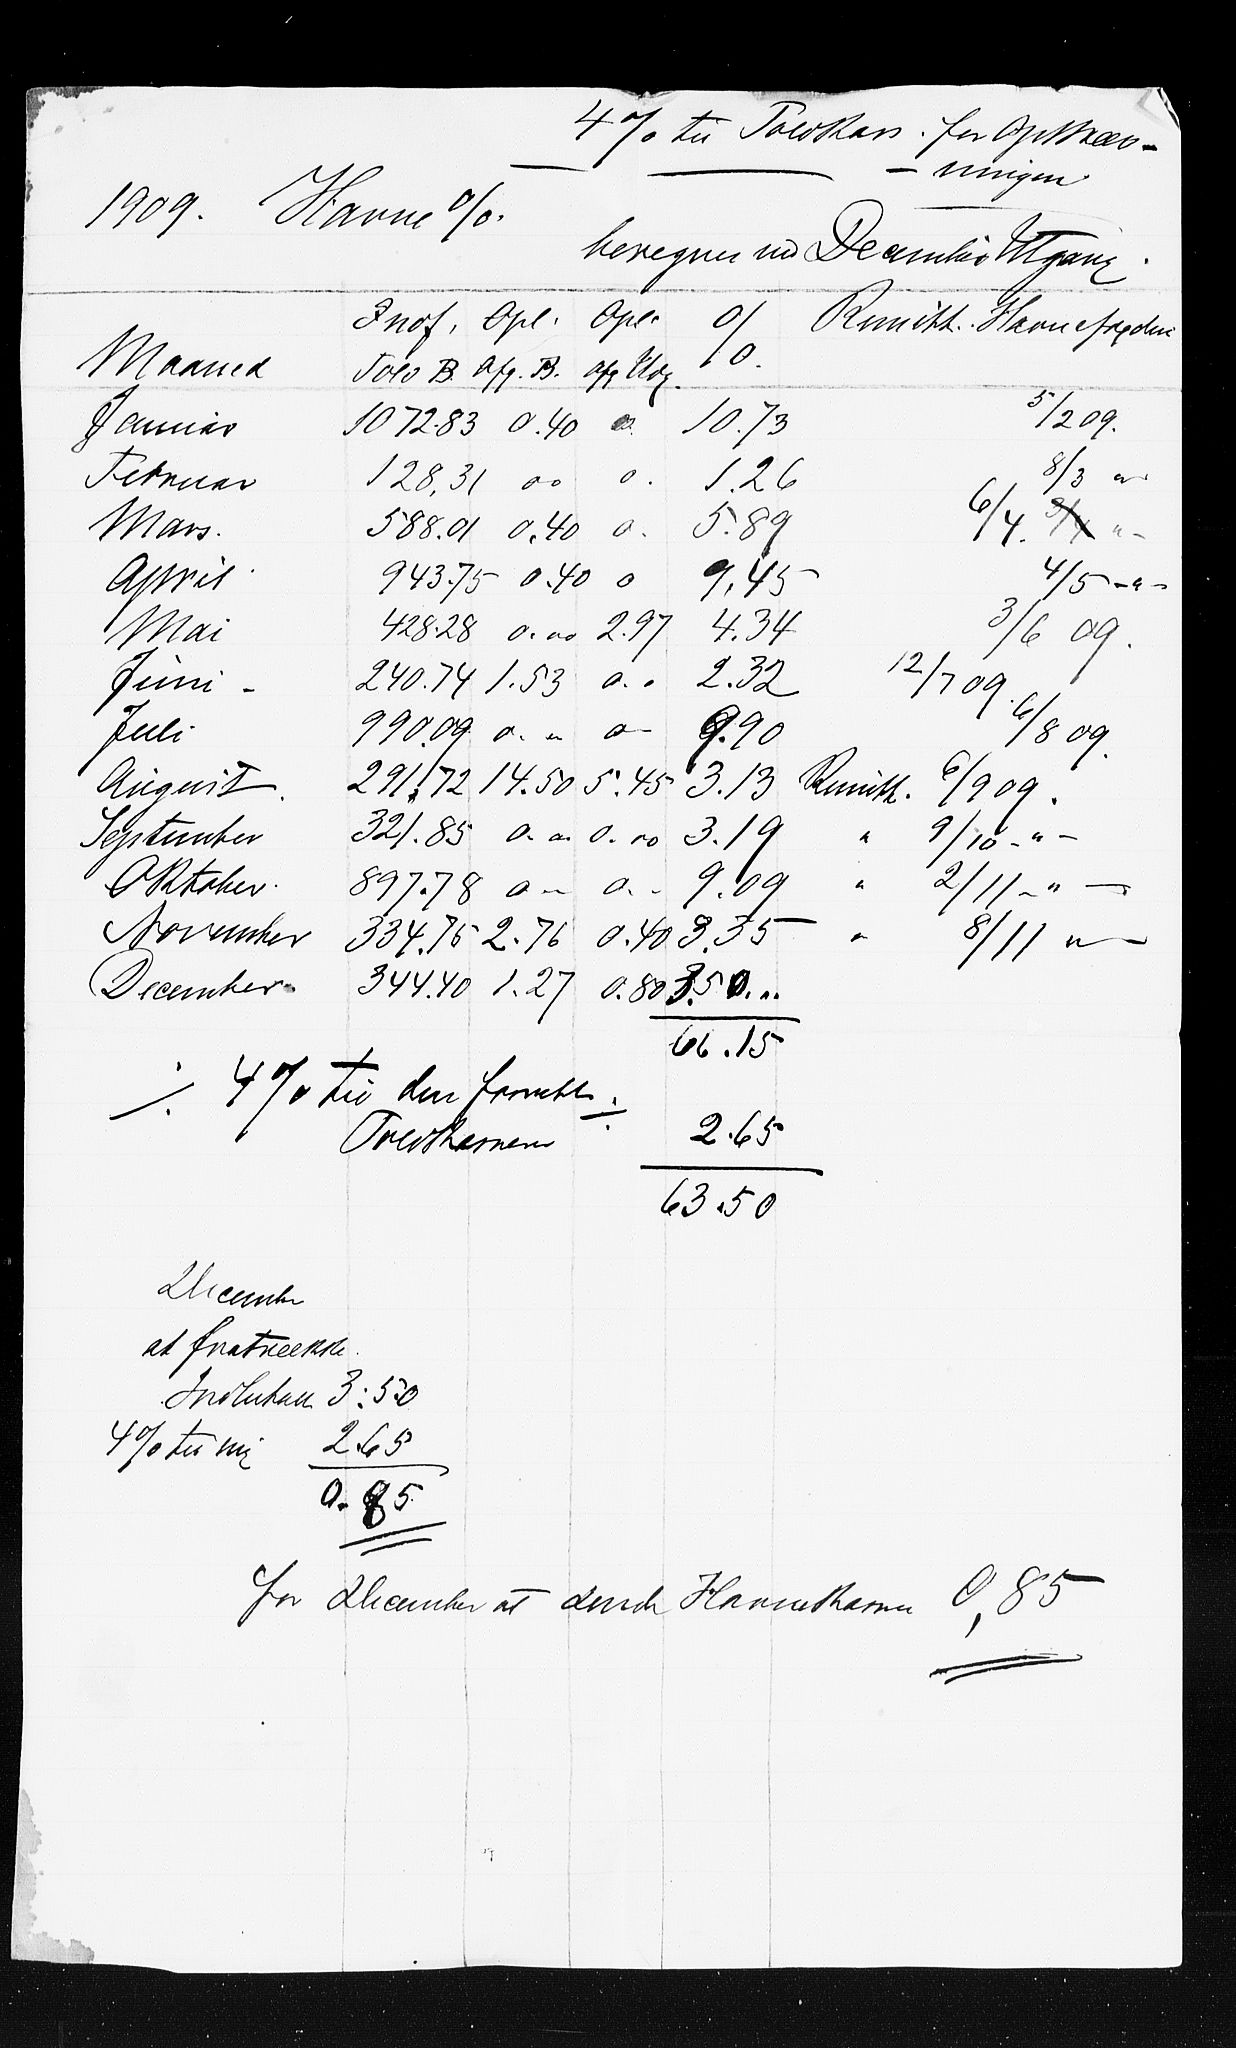 4% til Toldkass. for Opkræv-
ningen
1909. Havne %.
beregnes ved December Utgang.
Indf. Opl. Opl. % Remitt. Havnefogden
Maaned Told B. Afg. B. afg Udg.
Januar 1072.83 0.40 0. 10.73 5/2 09.
Februar 128,31 00 0. 1.26 8/3 "
Mars. 588.01 0.40 0. 5.89 6/4. "
April 943.75 0.40 0 9,45 4/5 - " -
Mai 428.28 0.00 2.97 4.34 3/6 09.
Juni - 240.74 1.53 0.. 2.32 12/7 09.
Juli 990.09 0. " 0 - 9.90 6/8 09.
August. 291.72 14.50 5.45 3.13 Remitt. 6/9 09.
September 321.85 0.00 0.00 3.19 " 9/10 - " -
Oktober. 897.78 0 - 0. - 9.09 " 2/11 - " -
November 334.75 2.76 0.40 3.35 " 8/11 "
December 344.40 1.27 0.80 3.50...
66.15
./. 4% til den forretts ./.
Toldkasserer 2.65
63.50
December
at fratrække
Indbetalt 3:50
4% til mig 2.65
0.85
for December at sende Havnekassen 0,85